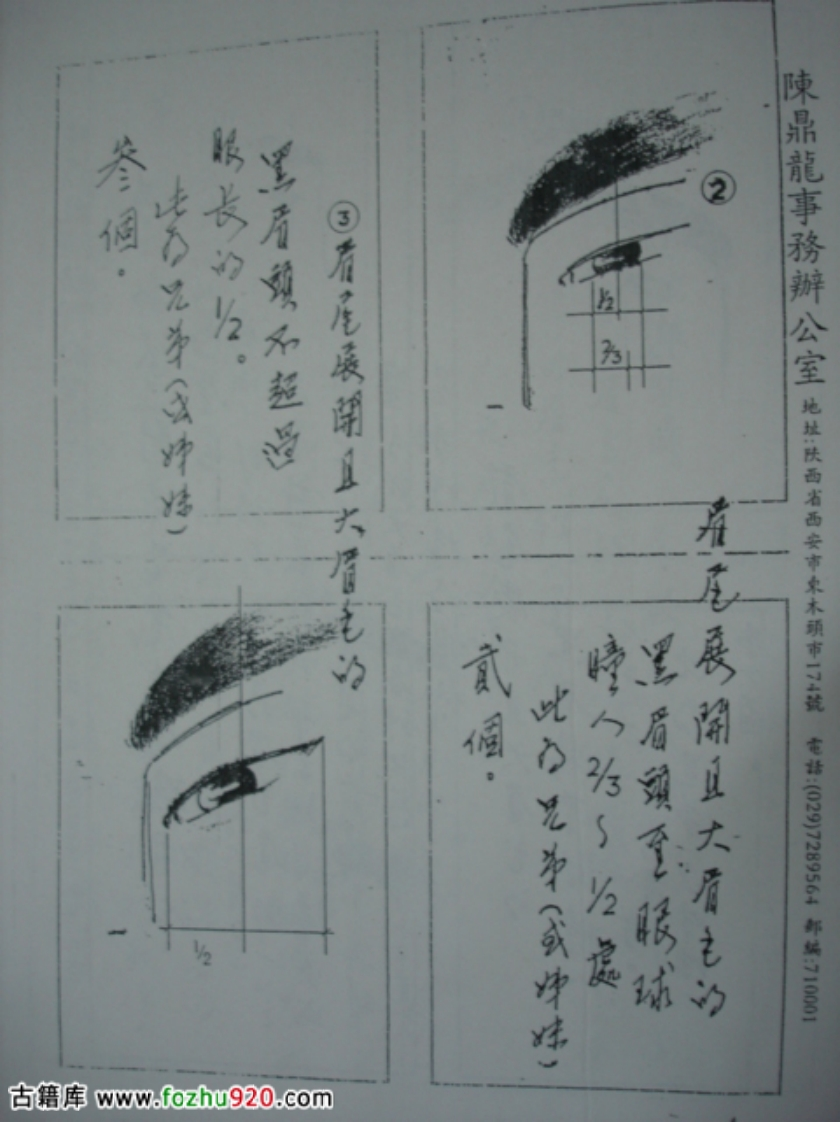 陳鼎龍事務辦公室 地址:陕西省西安市東木頭市174號 電話:(029)7289564 郵編:710001
②
1/2
2/3
眉尾展開且大眉毛的
黑眉頭至眼球
瞳人2/3~1/2處
此为兄弟(或姊妹)
貳個。
③眉尾展開且大眉毛的
黑眉頭不超過
眼長的1/2。
此为兄弟(或姊妹)
叁個。
1/2
古籍库 www.fozhu920.com